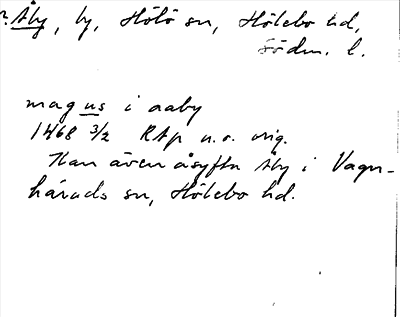 ?. Åby, by, Hölö sn, Hölebo hd,
Södm. l.
magnus i aaby
1468 3/2 RAp u.s. orig.
Kan även åsyfta Åby i Vagn-
härads sn, Hölebo hd.